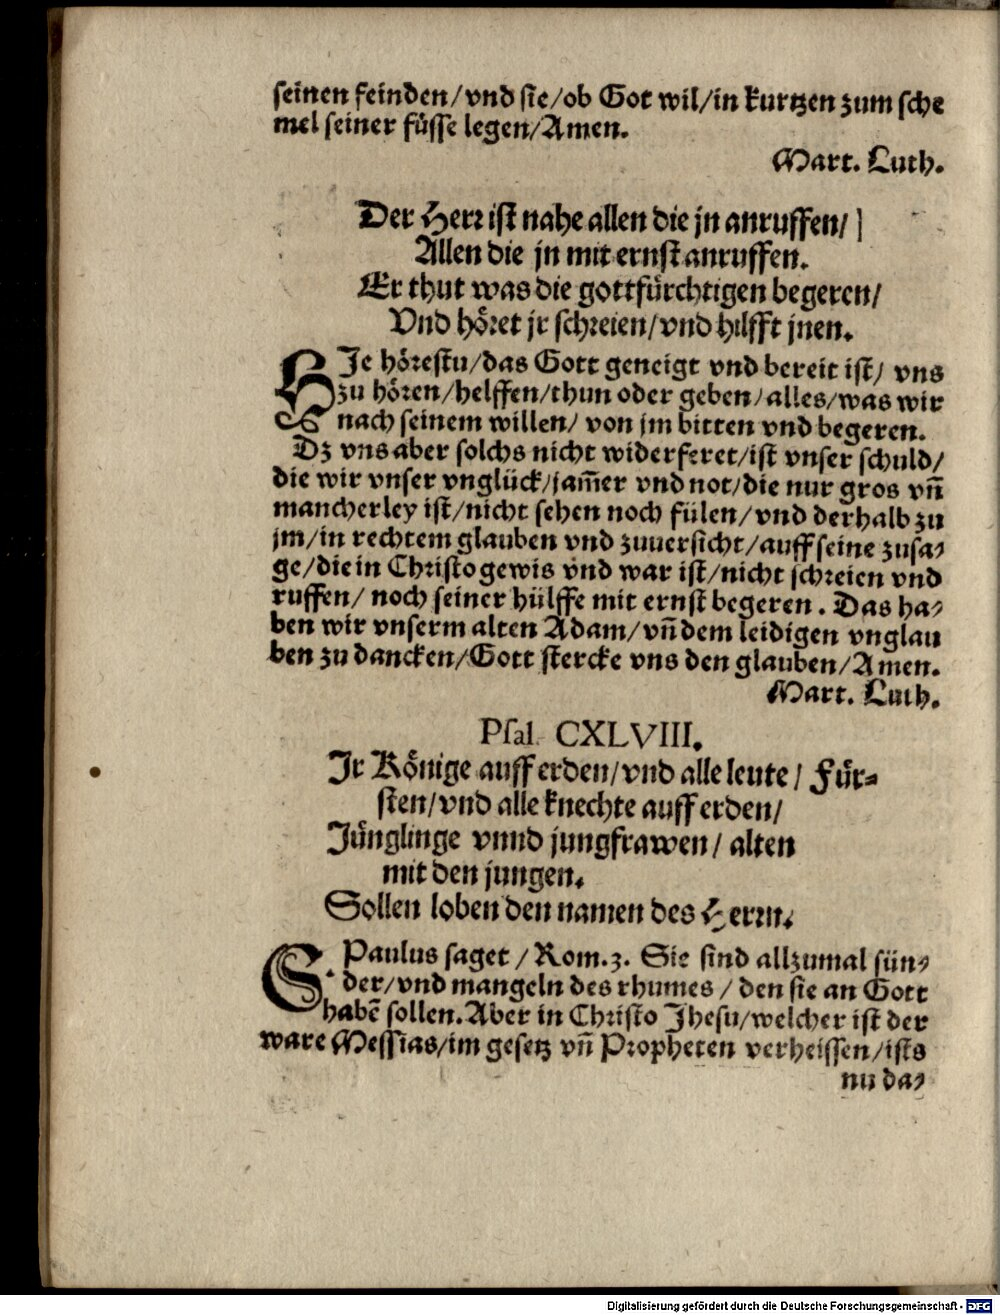 seinen feinden/vnd sie/ob Got wil/in kurtzen zum sche
mel seiner füsse legen/Amen.
Mart. Luth.
Der Herr ist nahe allen die jn anruffen/
Allen die jn mit ernst anruffen.
Er thut was die gottfürchtigen begeren/
Vnd höret jr schreien/vnd hilfft jnen.
HJe hörestu/das Gott geneigt vnd bereit ist/ vns
zu hören/helffen/thun oder geben/alles/was wir
nach seinem willen/ von jm bitten vnd begeren.
Dz vns aber solchs nicht widerferet/ist vnser schuld/
die wir vnser vnglück/jam̃er vnd not/die nur gros vñ
mancherley ist/nicht sehen noch fülen/vnd derhalb zu
jm/in rechtem glauben vnd zuuersicht/auff seine zusa⸗
ge/die in Christo gewis vnd war ist/nicht schreien vnd
ruffen/ noch seiner hülffe mit ernst begeren. Das ha⸗
ben wir vnserm alten Adam/vñ dem leidigen vnglau
ben zu dancken/Gott stercke vns den glauben/Amen.
Mart. Luth.
Psal. CXLVIII.
Jr Könige auff erden/vnd alle leute/ Für⸗
sten/vnd alle knechte auff erden/
Jünglinge vnnd jungfrawen/ alten
mit den jungen.
Sollen loben den namen des Herrn.
S. Paulus saget/Rom.3. Sie sind allzumal sün⸗
der/vnd mangeln des rhumes/ den sie an Gott
habẽ sollen. Aber in Christo Jhesu/welcher ist der
ware Messias/im gesetz vñ Propheten verheissen/ists
nu da⸗
Digitalisierung gefördert durch die Deutsche Forschungsgemeinschaft - DFG